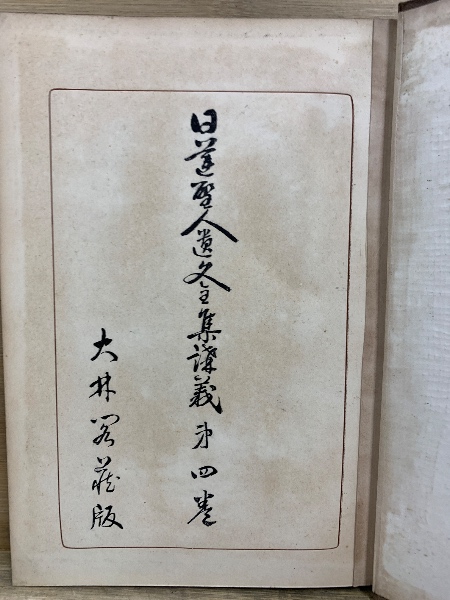 日蓮聖人遺文全集講義第四巻
大林閣蔵版